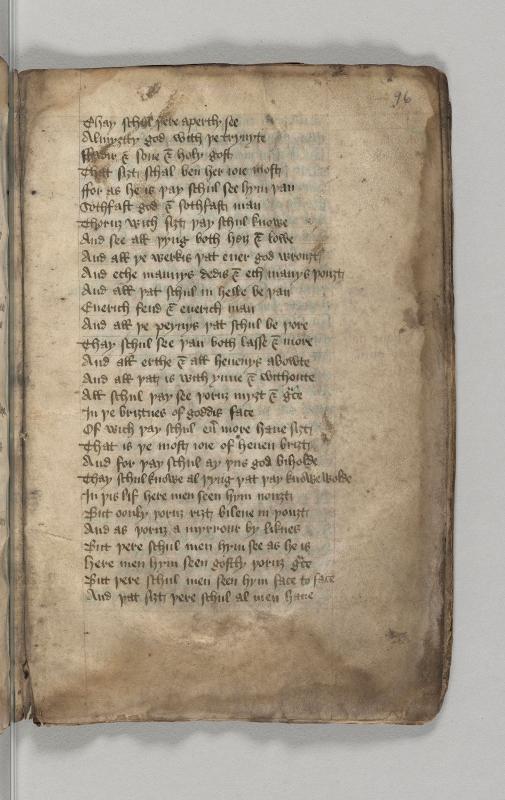 96
Thay schul þere aperthy see
Almyȝthy god with þe trynyte
ffadir & sone & holy gost
That siȝt schal ben her ioie most
ffor as he is þay schul see hym þan
Sothfast god & sothfast man
Thoruȝ wich siȝt þay schul knowe
And see all þyng both heiȝ & lowe
And all þe werkis þat euer god wrouȝt
And eche mannys dedis & ech manys þouȝt
And all þat schul in helle be þan
Euerich fend & euerich man
And all þe peynys þat schul be þore
Thay schul see þan both lasse & more
And all erthe & all heuenys abowte
And all þat is with ynne & withoute
All schul þay see þoruȝ myȝt & gce
In þe briȝtnes of goddis face
Of wich þay schul eu more haue siȝt
That is þe most ioie of heuen briȝt
And for þay schul ay þus god biholde
Thay schul knowe al þyng þat þay knowe wolde
In þis lif here men seen hym nouȝt
But oonly þoruȝ riȝt bileue in þouȝt
And as þoruȝ a myrrour by liknes
But þere schul men hym see as he is
Here men hym seen gostly þoruȝ gce
But þere schul men seen hym face to face
And þat siȝt þere schul al men haue